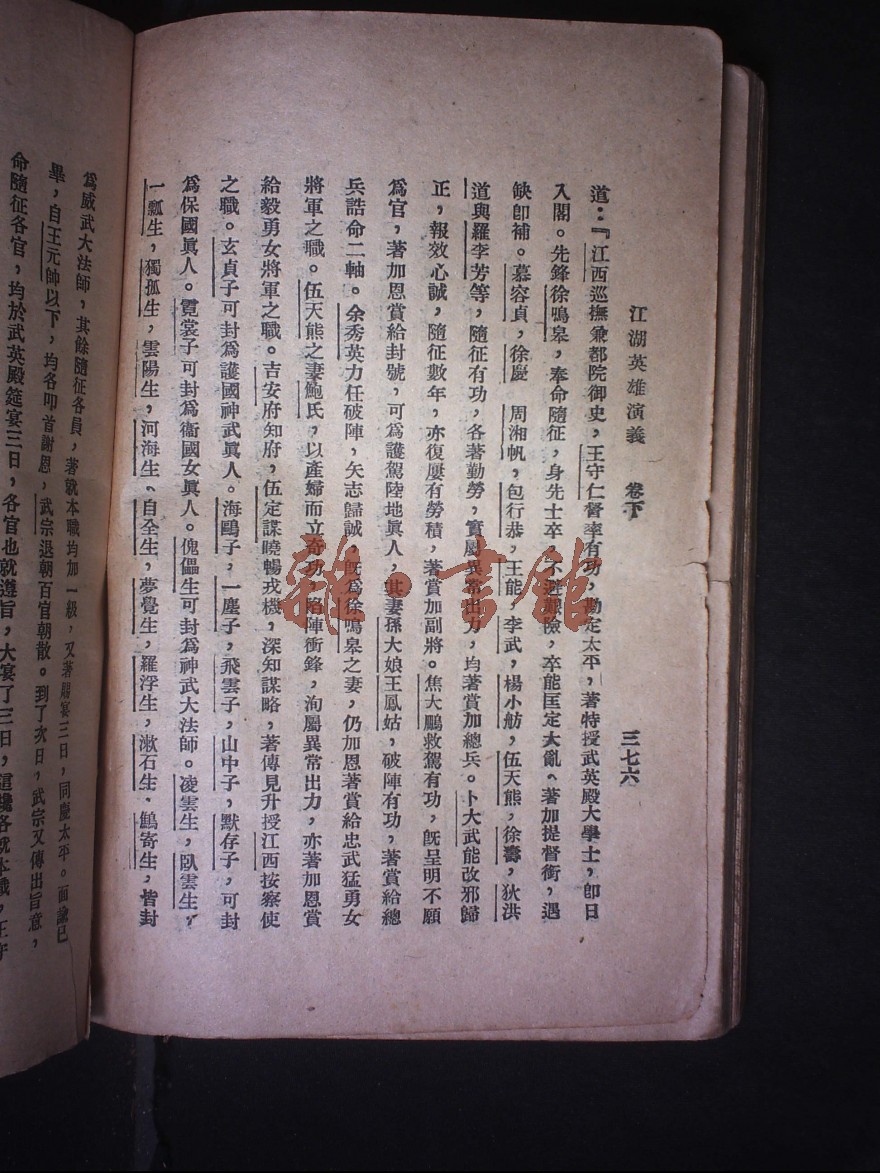 江湖英雄演義　卷下　三七六
道：『江西巡撫兼都院御史，王守仁督率有功，勘定太平，著特授武英殿大學士，卽日
入閣。先鋒徐鳴皋，奉命隨征，身先士卒，不避艱險，卒能匡定大亂、著加提督銜，遇
缺卽補。慕容貞，徐慶　周湘帆，包行恭，王能，李武，楊小舫，伍天熊，徐壽，狄洪
道與羅季芳等，隨征有功，各著勤勞，實屬異常出力，均著賞加總兵。卜大武能改邪歸
正，報效心誠，隨征數年，亦復屢有勞積，著賞加副將。焦大鵬救駕有功，旣呈明不願
爲官，著加恩賞給封號，可爲護駕陸地眞人，其妻孫大娘王鳳姑，破陣有功，著賞給總
兵誥命二軸。余秀英力任破陣，矢志歸誠，旣爲徐鳴皋之妻，仍加恩著賞給忠武猛勇女
將軍之職。伍天熊之妻鮑氏，以產婦而立奇功，陷陣衝鋒，洵屬異常出力，亦著加恩賞
給毅勇女將軍之職。吉安府知府，伍定謀曉暢戎機，深知謀略，著傳見升授江西按察使
之職。玄貞子可封爲護國神武眞人。海鷗子，一塵子，飛雲子，山中子，默存子，可封
爲保國眞人。霓裳子可封爲衞國女眞人。傀儡生可封爲神武大法師。凌雲生，臥雲生，
一瓢生，獨孤生，雲陽生，河海生、自全生，夢覺生，羅浮生，漱石生．鷦寄生，皆封
爲威武大法師，其餘隨征各員，著就本職均加一級，又著賜宴三日，同慶太平。面諭已
畢，自王元帥以下，均各叩首謝恩，武宗退朝百官朝散。到了次日，武宗又傳出旨意，
命隨征各官，均於武英殿筵宴三日，各官也就遵旨，大宴了三日，這纔各就本職，王守
雜·書館